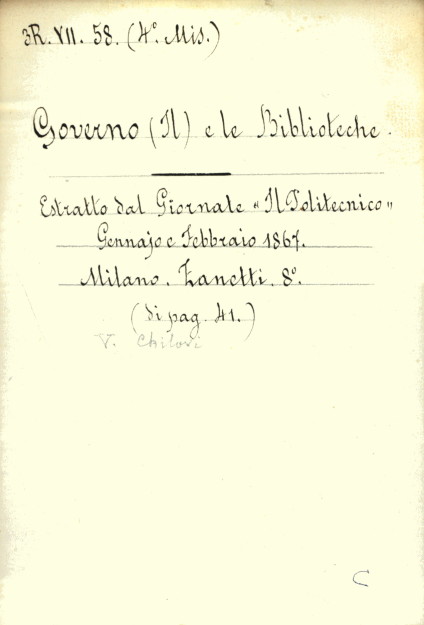 3R. VII. 58. (4º. Mis.)
Governo (Il) e le Biblioteche.
Estratto dal Giornale "Il Politecnico"
Gennajo e Febbraio 1867.
Milano. Zanetti. 8º.
(di pag. 41.)
V. Chilovi
C